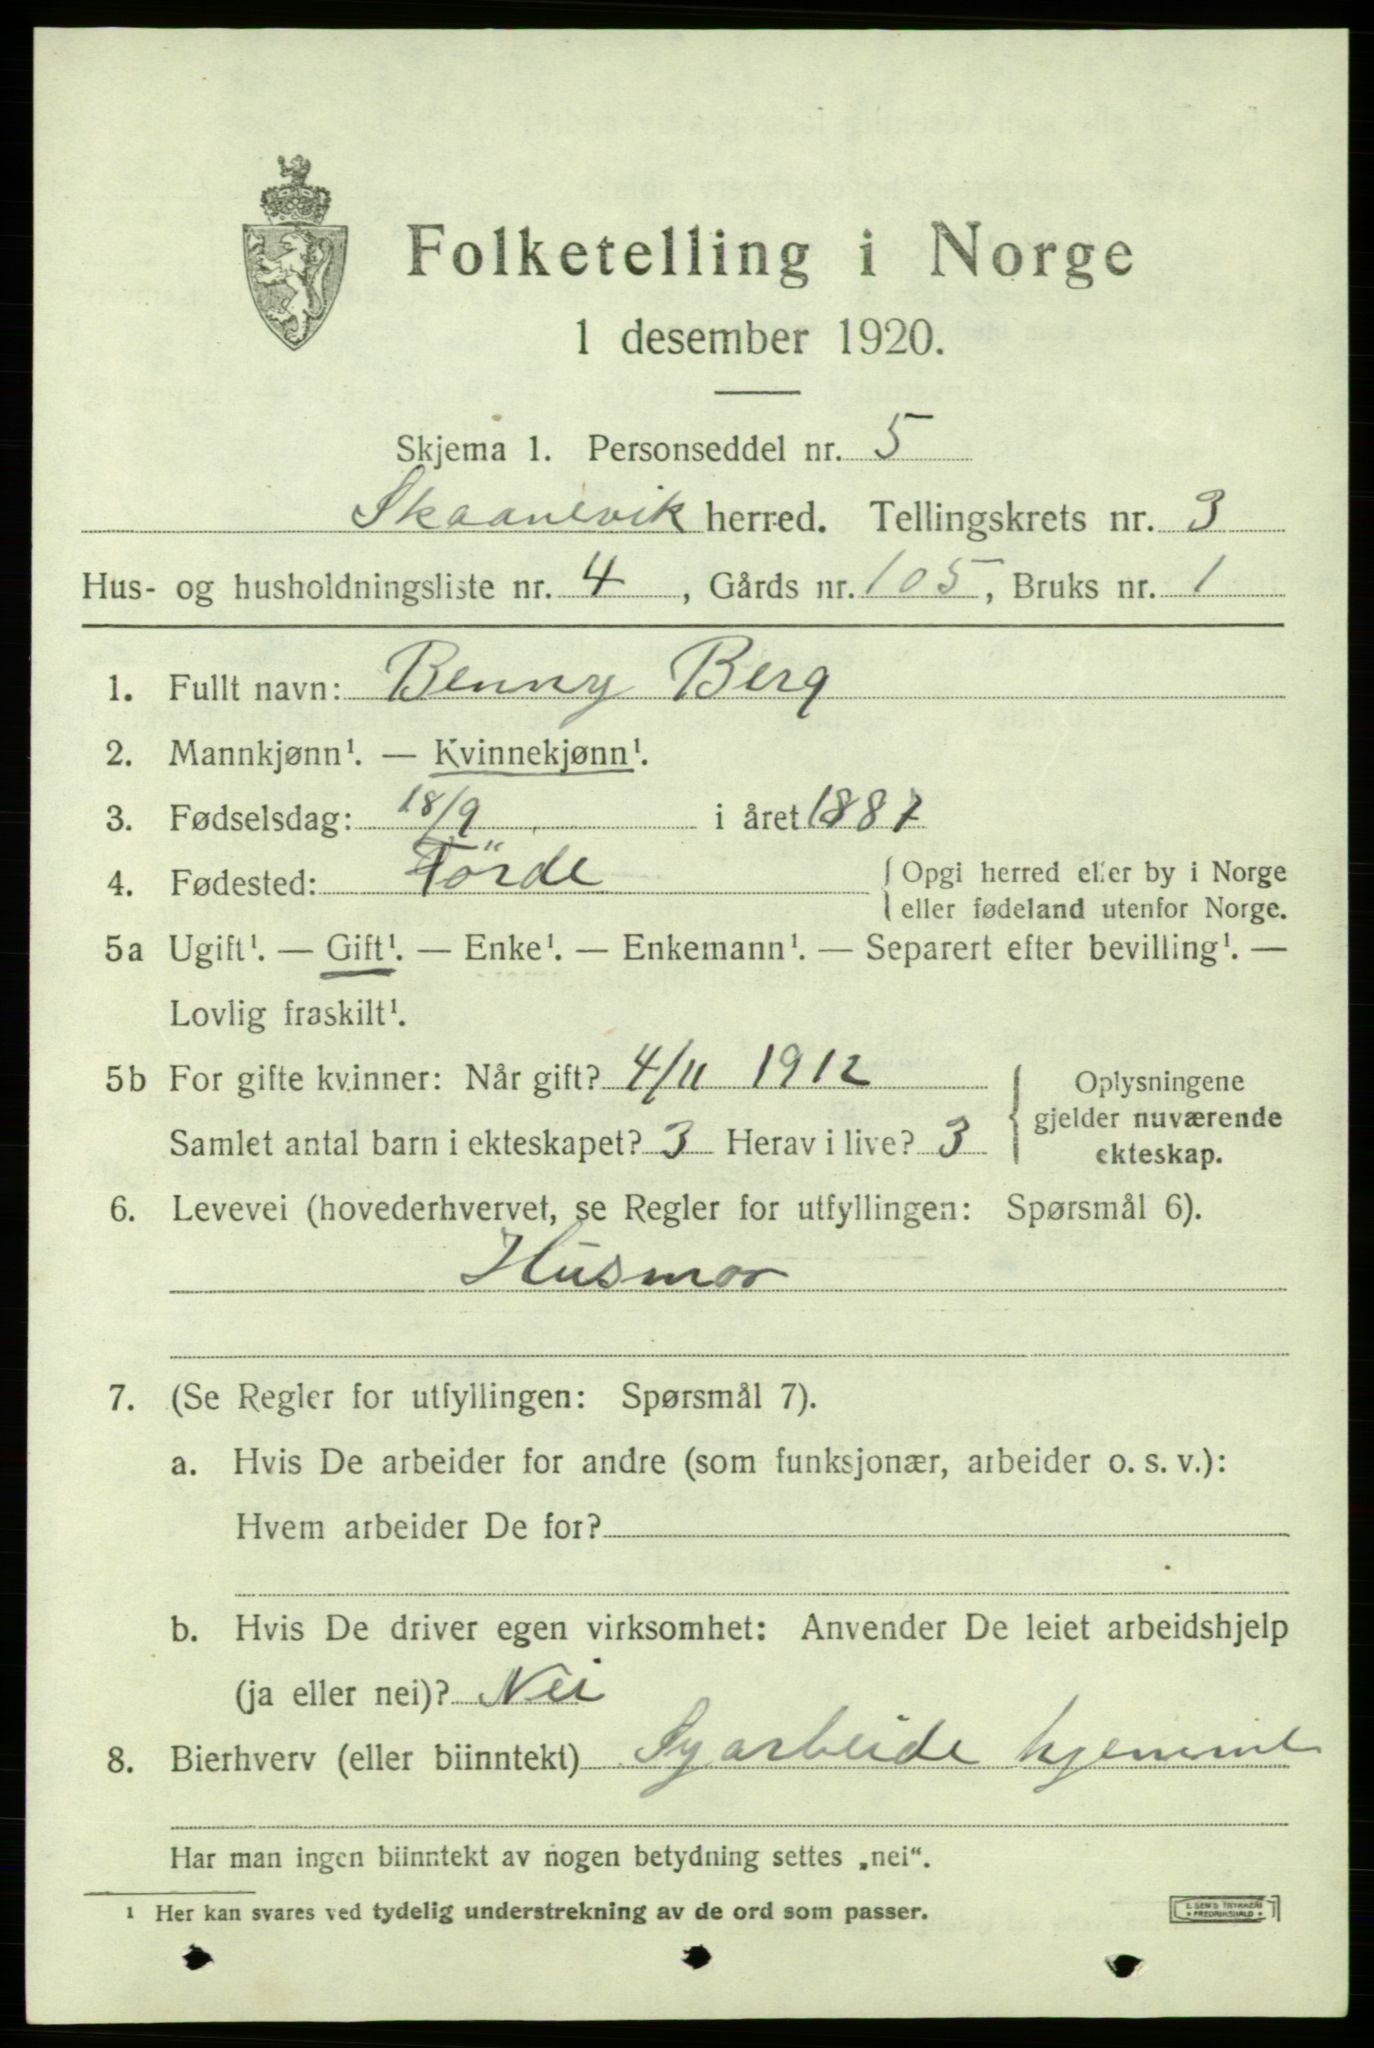 Folketelling i Norge
1 desember 1920.
Skjema 1. Personseddel nr. 5
Skaanevik herred. Tellingskrets nr. 3
Hus- og husholdningsliste nr. 4, Gårds nr. 105, Bruks nr. 1
1. Fullt navn: Benny Berg
2. Mannkjønn¹. — Kvinnekjønn¹.
3. Fødselsdag: 18/9 i året 1887
4. Fødested: Förde
Opgi herred eller by i Norge
eller fødeland utenfor Norge.
5a Ugift¹. — Gift¹. — Enke¹. — Enkemann¹. — Separert efter bevilling¹. —
Lovlig fraskilt¹.
5b For gifte kvinner: Når gift? 4/11 1912
Samlet antal barn i ekteskapet? 3 Herav i live? 3
Oplysningene
gjelder nuværende
ekteskap.
6. Levevei (hovederhvervet, se Regler for utfyllingen: Spørsmål 6).
Husmor
7. (Se Regler for utfyllingen: Spørsmål 7).
a. Hvis De arbeider for andre (som funksjonær, arbeider o. s. v.):
Hvem arbeider De for?
b. Hvis De driver egen virksomhet: Anvender De leiet arbeidshjelp
(ja eller nei)? Nei
8. Bierhverv (eller biinntekt) Syarbeide hjemme
Har man ingen biinntekt av nogen betydning settes „nei“.
¹ Her kan svares ved tydelig understrekning av de ord som passer.